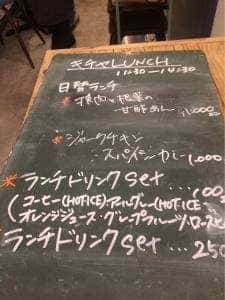 キチャLUNCH
11:30-14:30
日替ランチ
※ 豚肉と根菜の
甘酢あん ¥1,000
※ ジャークチキン
スパイシーカレー 1,000
※ランチドリンクset … 100
(コーヒー(HOT・ICE)・アールグレー(HOT・ICE
オレンジジュース・グレープフルーツ・ロースヒ
ランチドリンクset … 250